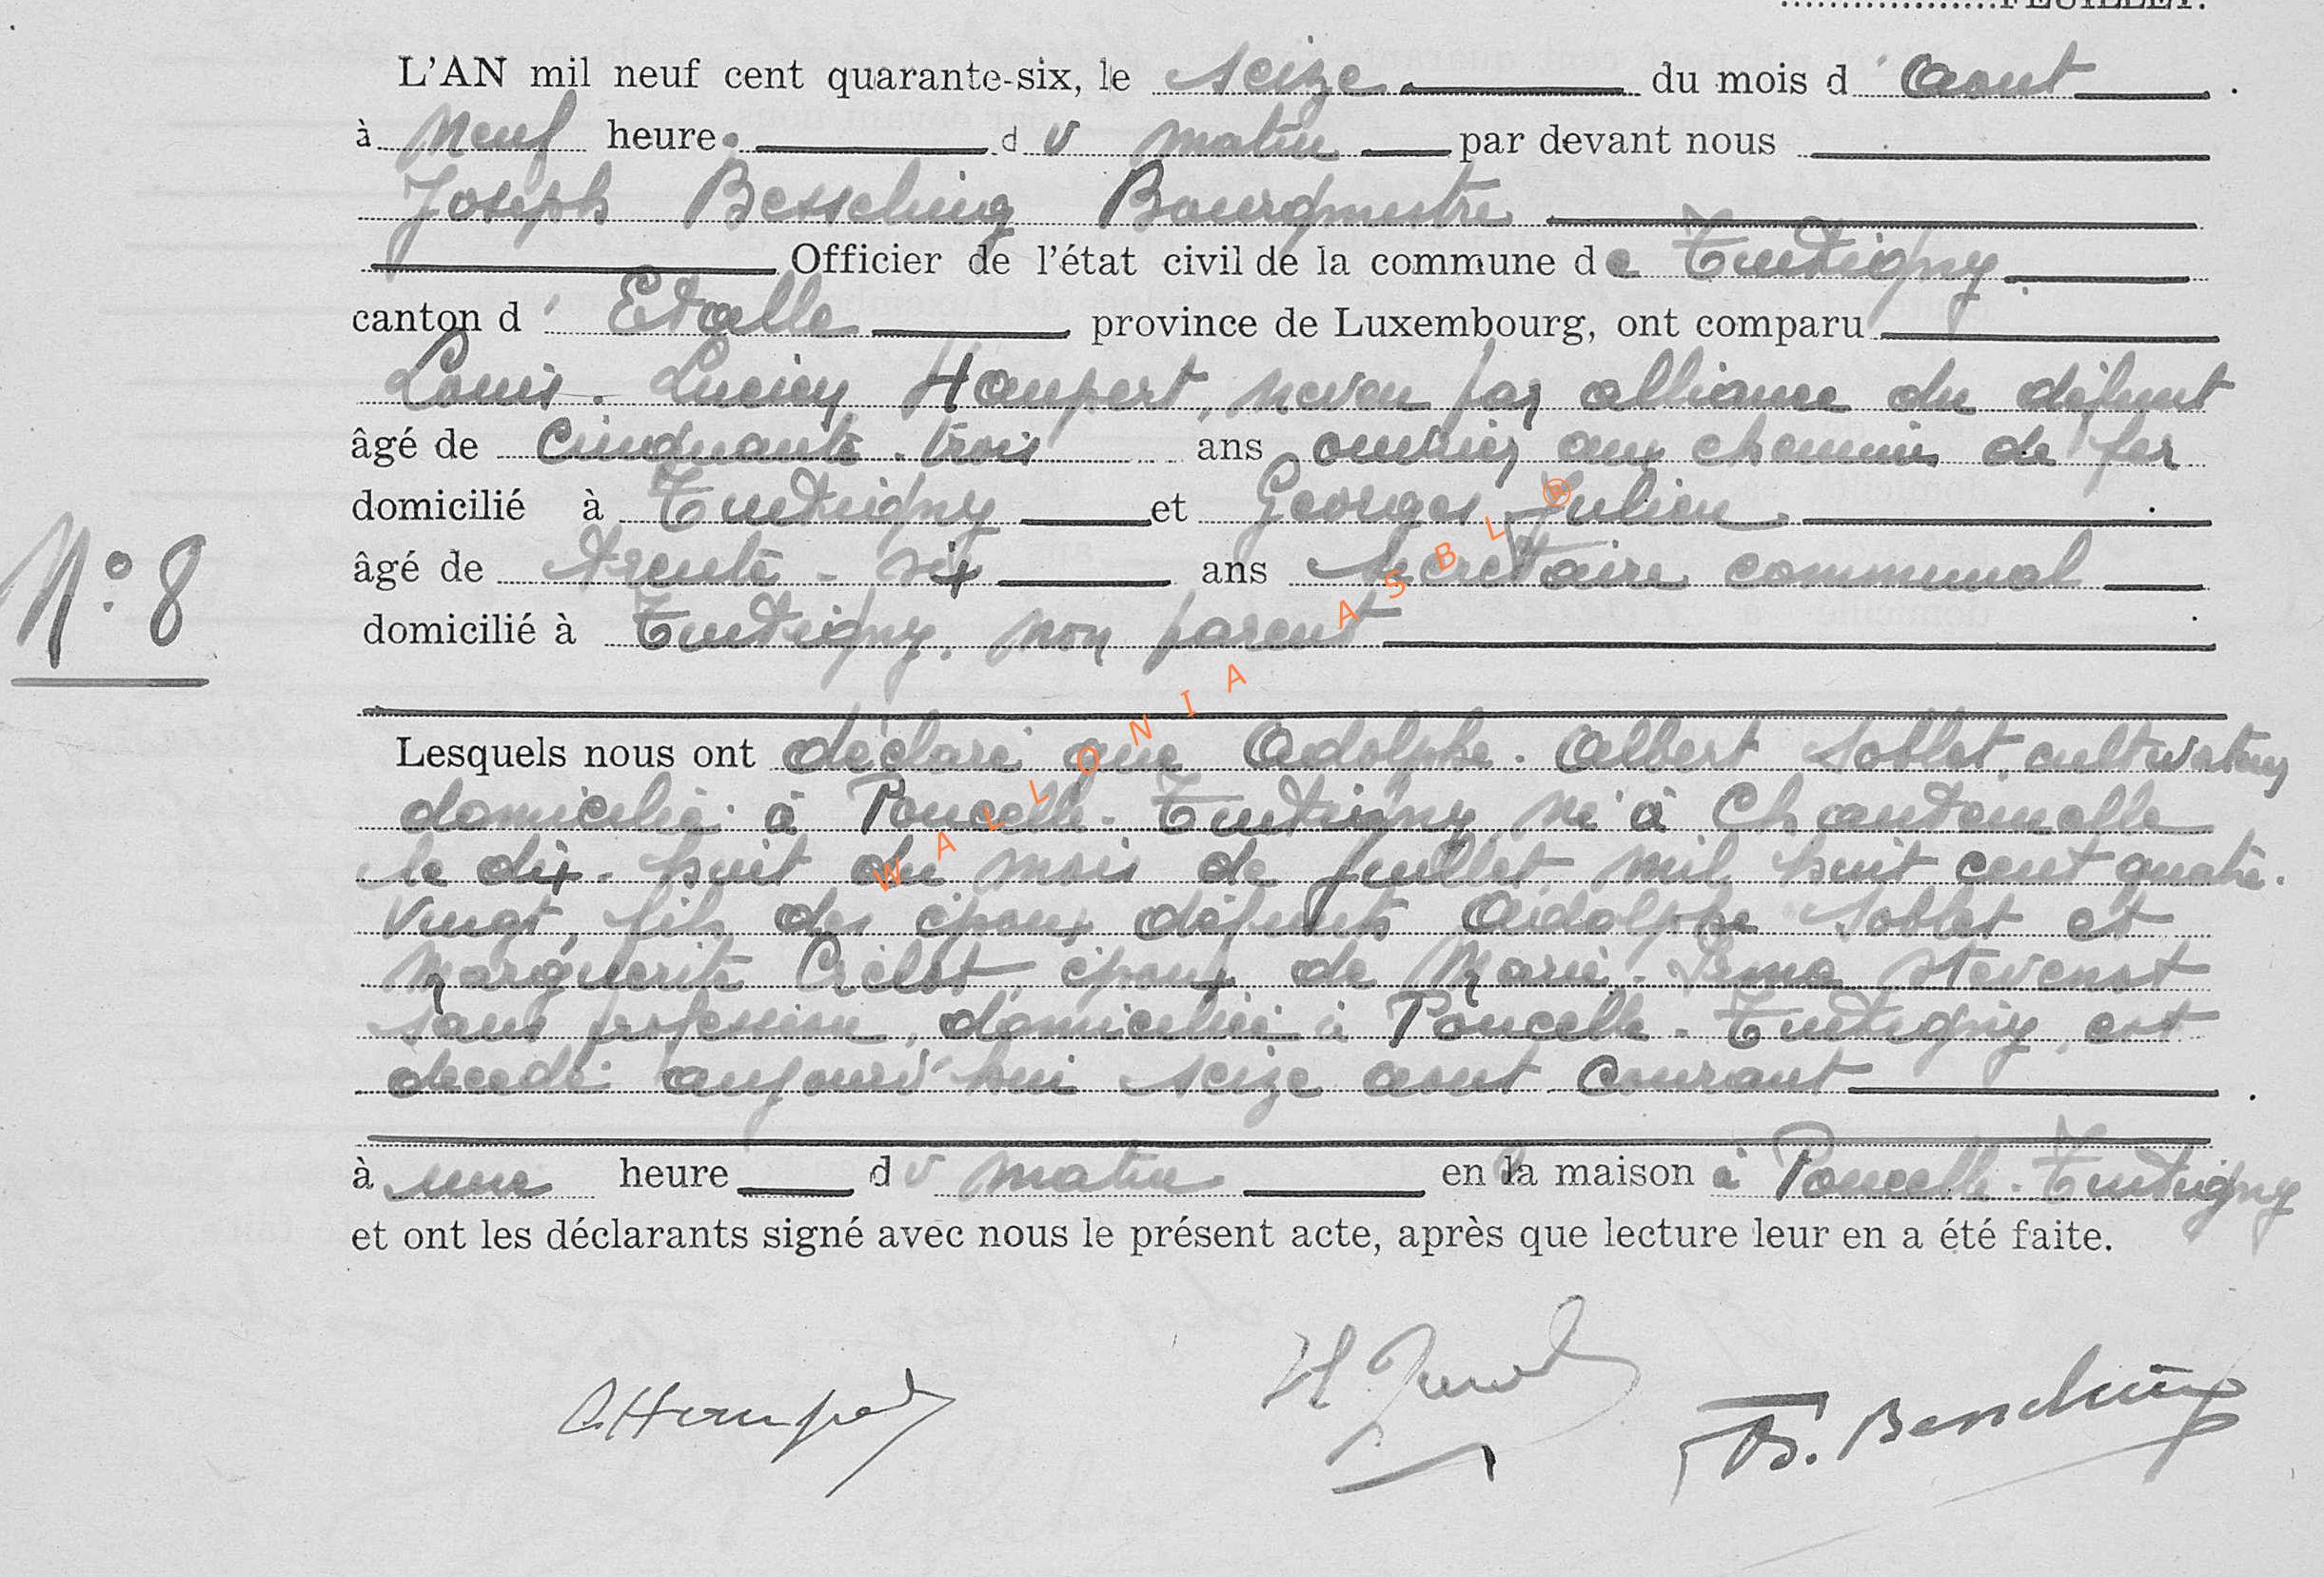 FEUILLET.
L'AN mil neuf cent quarante-six, le seize du mois d'Aout.
à Neuf heures du matin par devant nous
Joseph Besseling Bourgmestre
Officier de l'état civil de la commune de Tintigny
canton d'Etalle province de Luxembourg, ont comparu
Louis-Lucien Haupert, neveu par alliance du défunt
âgé de cinquante-trois ans ouvrier aux chemins de fer
domicilié à Tintigny et Georges Julien
âgé de trente-six ans secrétaire communal
N° 8
domicilié à Tintigny, non parent
Lesquels nous ont déclaré que Adolphe-Albert Soblet, cultivateur
domicilié à Poncelle-Tintigny, né à Chantemelle
le dix-huit du mois de Juillet mil huit cent quatre-
vingt, fils des époux défunts Adolphe Soblet et
Marguerite Crélot, époux de Marie- Stevenot
sans profession, domiciliée à Poncelle-Tintigny, est
décédé aujourd'hui seize aout courant
à une heure du matin en la maison à Poncelle-Tintigny
et ont les déclarants signé avec nous le présent acte, après que lecture leur en a été faite.
Haupert
WALLONIA ASBL ®